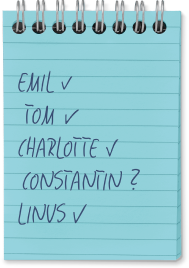 EMIL ✓
TOM ✓
CHARLOTTE ✓
CONSTANTIN ?
LINUS ✓